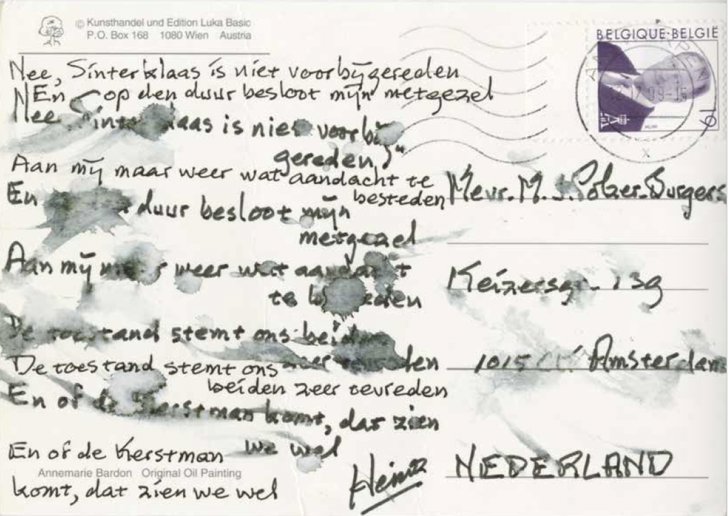 © Kunsthandel und Edition Luka Basic
P.O. Box 168 1080 Wien Austria
BELGIQUE-BELGIË
Nee, Sinterklaas is niet voorbijgereden
En op den duur besloot mijn metgezel
Nee, Sinterklaas is niet voorbij
gereden,
Aan mij maar weer wat aandacht te
besteden
En duur besloot mijn
metgezel
Aan mij weer wat aandacht
te besteden
De toestand stemt ons beiden
De toestand stemt ons zeer tevreden
beiden zeer tevreden
En of de Kerstman komt, dat zien
we wel
En of de Kerstman
komt, dat zien we wel
Heinz
Annemarie Bardon Original Oil Painting
16
Mevr. M. J. Polzer-Burgers
Keizersgr. 139
1015 Amsterdam
NEDERLAND